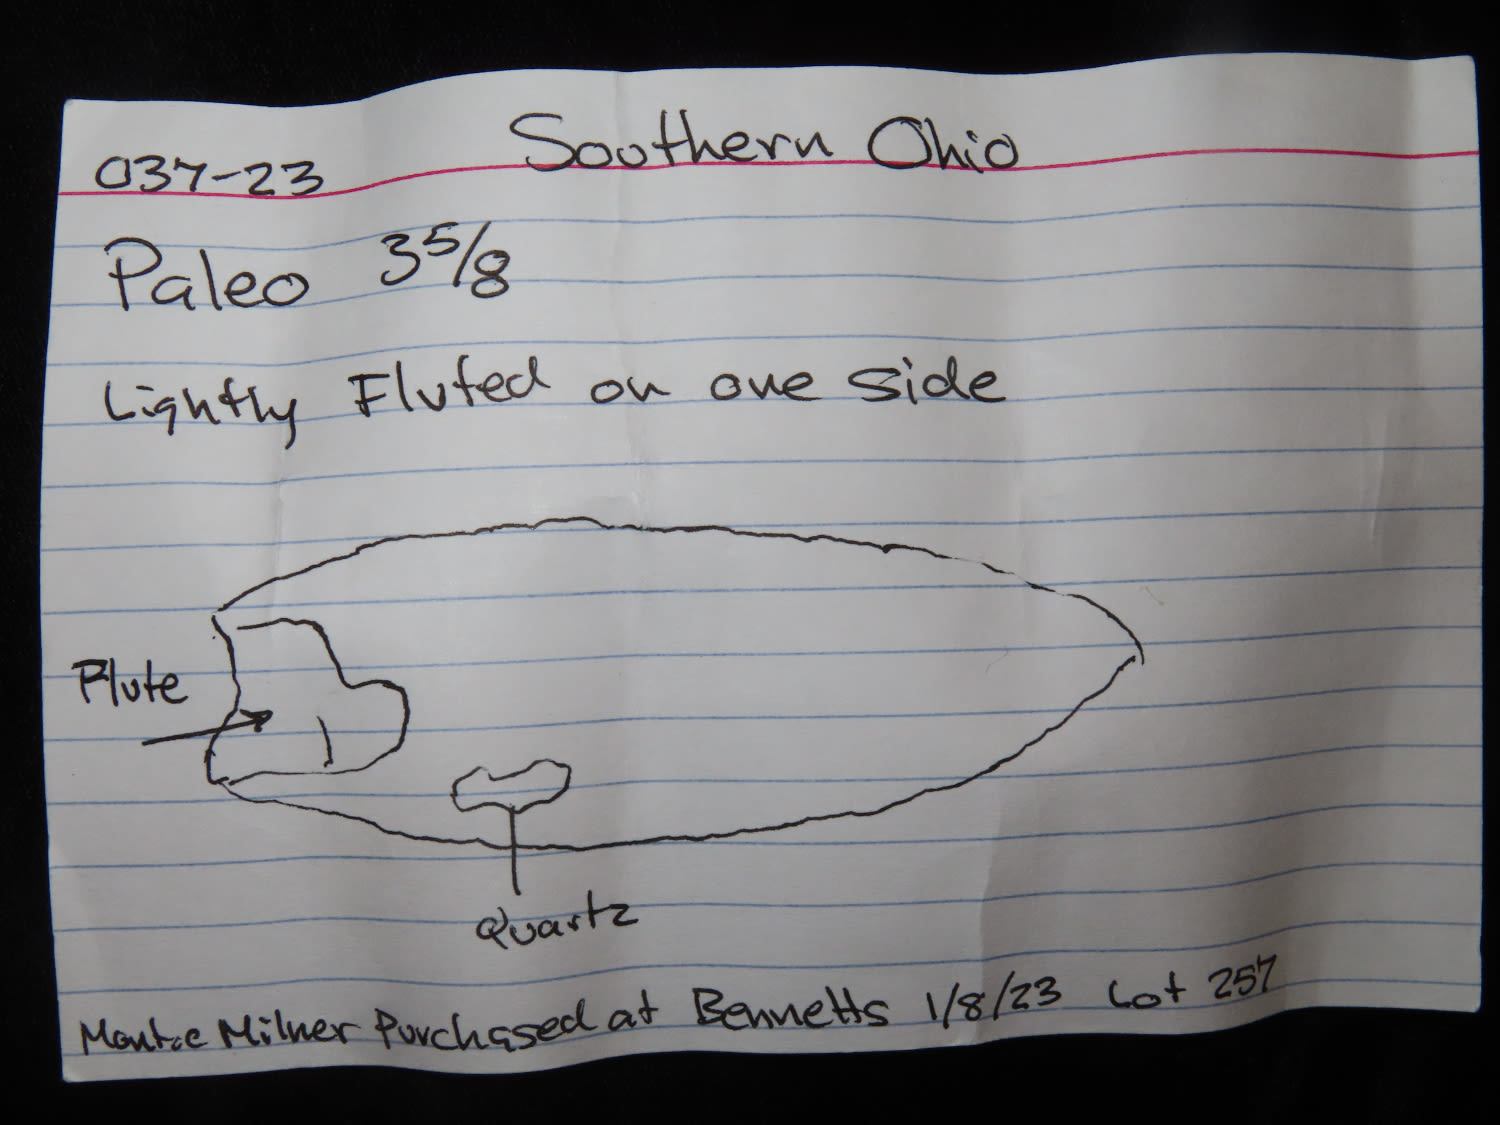 Southern Ohio
037-23
Paleo 3 5/8
Lightly Fluted on one side
Flute
Quartz
Milner Purchased at Bennetts 1/8/23 Lot 257